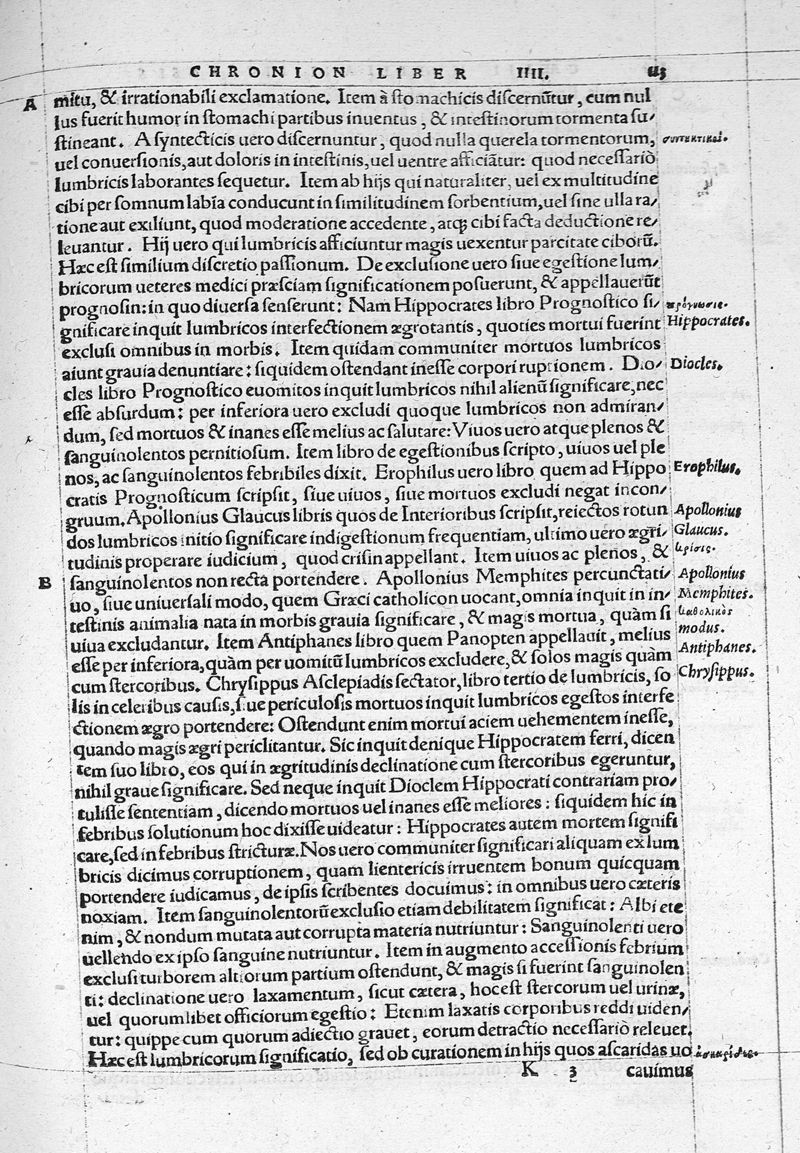 CHRONION LIBER IIII.
A mitu, & irrationabili exclamatione. Item à stomachicis discernũtur, cum nul
lus fuerit humor in stomachi partibus inuentus, & intestinorum tormenta su/
stineant. A syntecticis uero discernuntur, quod nulla querela tormentorum, συντηκτικοί.
uel conuersionis, aut doloris in intestinis, uel uentre afficiãtur: quod necessariò
lumbricis laborantes sequetur. Item ab hijs qui naturaliter, uel ex multitudine
cibi per somnum labia conducunt in similitudinem sorbentium, uel sine ulla ra/
tione aut exiliunt, quod moderatione accedente, atq; cibi facta deductione re/
leuantur. Hij uero qui lumbricis afficiuntur magis uexentur parcitate ciborũ.
Hæc est similium discretio passionum. De exclusione uero siue egestione lum/
bricorum ueteres medici præsciam significationem posuerunt, & appellauerũt
prognosin: in quo diuersa senserunt: Nam Hippocrates libro Prognostico si/ πρόγνωσις.
gnificare inquit lumbricos interfectionem ægrotantis, quoties mortui fuerint Hippocrates.
exclusi omnibus in morbis. Item quidam communiter mortuos lumbricos
aiunt grauia denuntiare: siquidem ostendant inesse corpori ruptionem. Dio/ Diocles.
cles libro Prognostico euomitos inquit lumbricos nihil alienũ significare, nec
esse absurdum: per inferiora uero excludi quoque lumbricos non admiran/
dum, sed mortuos & inanes esse melius ac salutare: Viuos uero atque plenos &
sanguinolentos pernitiosum. Item libro de egestionibus scripto, uiuos uel ple
nos, ac sanguinolentos febribiles dixit. Erophilus uero libro quem ad Hippo Erophilus.
cratis Prognosticum scripsit, siue uiuos, siue mortuos excludi negat incon/
gruum. Apollonius Glaucus libris quos de Interioribus scripsit, reiectos rotun Apollonius
dos lumbricos initio significare indigestionum frequentiam, ultimo uero ægri/ Glaucus.
tudinis properare iudicium, quod crisin appellant. Item uiuos ac plenos, & κρίσις.
B sanguinolentos non recta portendere. Apollonius Memphites percunctati/ Apollonius
uo, siue uniuersali modo, quem Græci catholicon uocant, omnia inquit in in/ Memphites.
testinis animalia nata in morbis grauia significare, & magis mortua, quàm si καθολικὸς
uiua excludantur. Item Antiphanes libro quem Panopten appellauit, melius modus.
esse per inferiora, quàm per uomitũ lumbricos excludere, & solos magis quàm Antiphanes.
cum stercoribus. Chrysippus Asclepiadis sectator, libro tertio de lumbricis, so Chrysippus.
lis in celeribus causis, siue periculosis mortuos inquit lumbricos egestos interfe
ctionem ægro portendere: Ostendunt enim mortui aciem uehementem inesse,
quando magis ægri periclitantur. Sic inquit denique Hippocratem ferri, dicen
tem suo libro, eos qui in ægritudinis declinatione cum stercoribus egeruntur,
nihil graue significare. Sed neque inquit Dioclem Hippocrati contrariam pro/
tulisse sententiam, dicendo mortuos uel inanes esse meliores: siquidem hic in
febribus solutionum hoc dixisse uideatur: Hippocrates autem mortem signifi
care, sed in febribus stricturæ. Nos uero communiter significari aliquam ex lum
bricis dicimus corruptionem, quam lientericis irruentem bonum quicquam
portendere iudicamus, de ipsis scribentes docuimus: in omnibus uero cæteris
noxiam. Item sanguinolentorũ exclusio etiam debilitatem significat: Albi ete
nim, & nondum mutata aut corrupta materia nutriuntur: Sanguinolenti uero
uellendo ex ipso sanguine nutriuntur. Item in augmento accessionis febrium
exclusi turborem altiorum partium ostendunt, & magis si fuerint sanguinolen
ti: declinatione uero laxamentum, sicut cætera, hoc est stercorum uel urinæ,
uel quorumlibet officiorum egestio: Etenim laxatis corporibus reddi uiden/
tur: quippe cum quorum adiectio grauet, eorum detractio necessariò releuet.
Hæc est lumbricorum significatio, sed ob curationem in hijs quos ascaridas uo ἀσκαρίδας.
K 3 cauimus